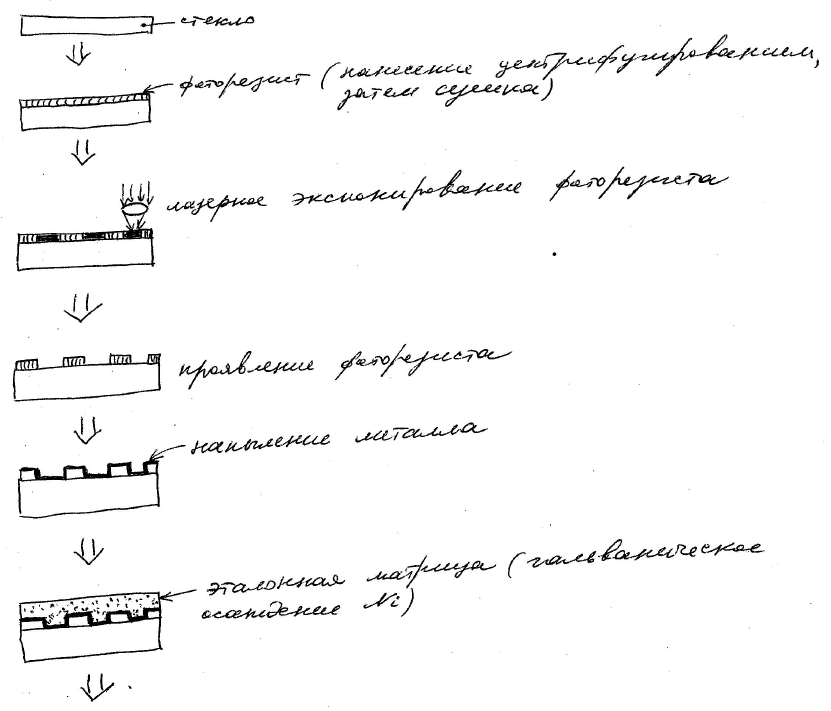 стекло
фоторезист (нанесение центрифугированием,
затем сушка)
лазерное экспонирование фоторезиста
проявление фоторезиста
напыление металла
эталонная матрица (гальваническое
осаждение Ni)